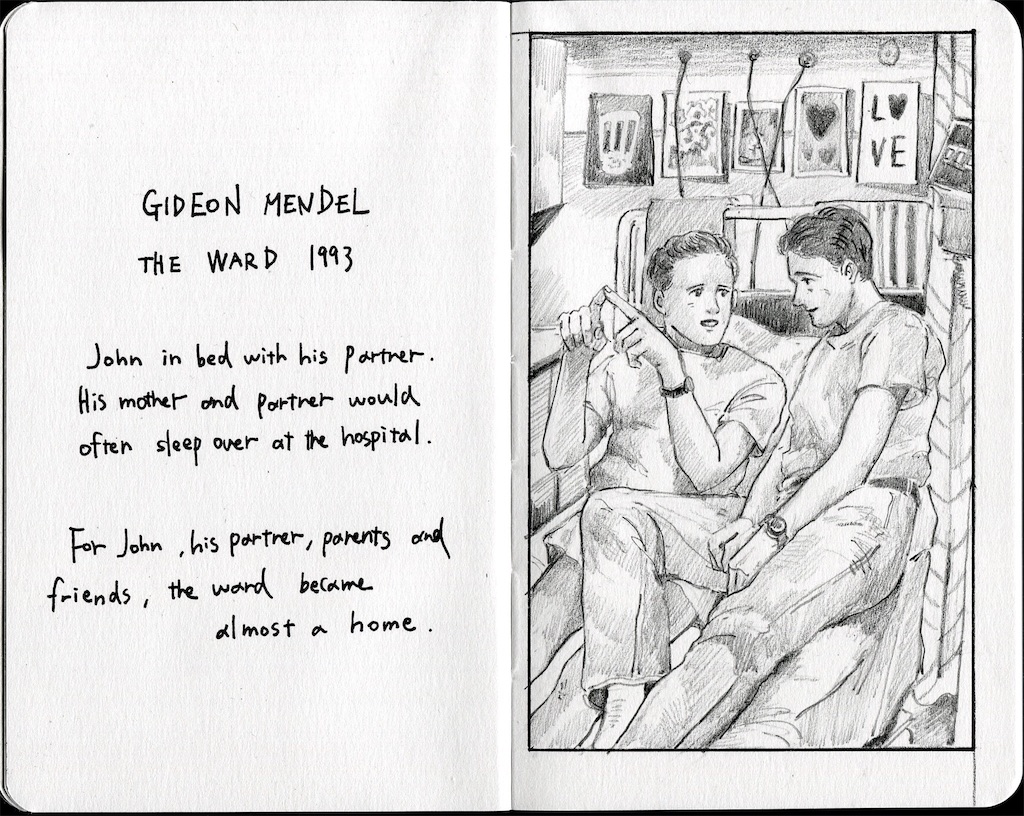 GIDEON MENDEL
THE WARD 1993
John in bed with his partner.
His mother and partner would
often sleep over at the hospital.
For John, his partner, parents and
friends, the ward became
almost a home.
L♥
VE